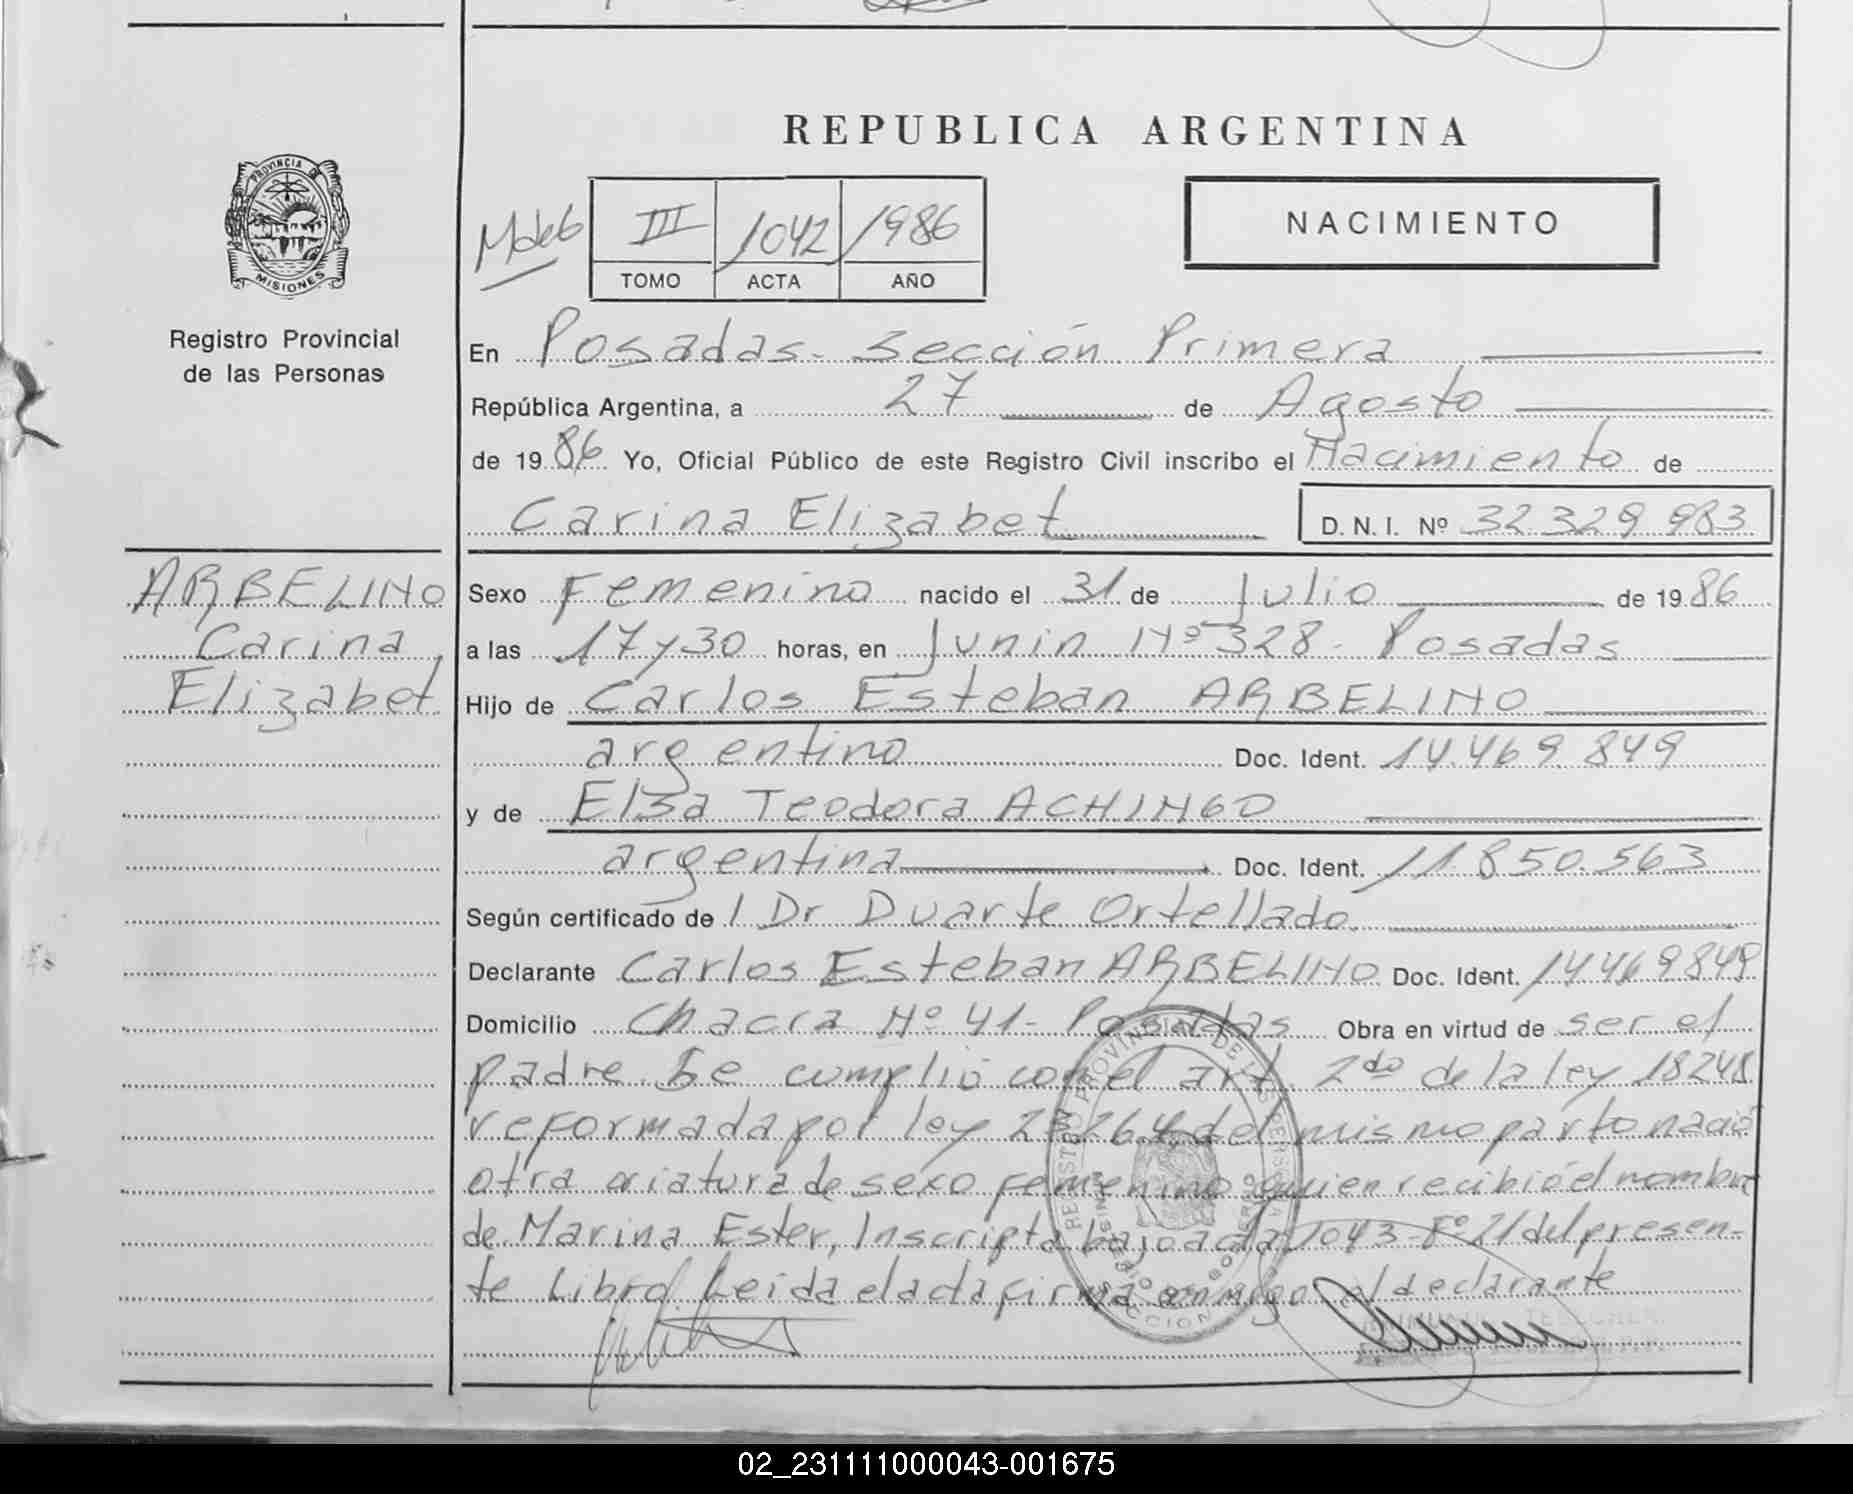 REPUBLICA ARGENTINA
PROVINCIA DE
MISIONES
Registro Provincial
de las Personas
III 1042 1986
TOMO ACTA AÑO
NACIMIENTO
En Posadas - Sección Primera
República Argentina, a 27 de Agosto
de 1986 Yo, Oficial Público de este Registro Civil inscribo el Nacimiento de
Carina Elizabet D.N.I. Nº 32.329.983
ARBELINO
Carina
Elizabet
Sexo Femenino nacido el 31 de Julio de 1986
a las 17 y 30 horas, en Junin Nº 328 - Posadas
Hijo de Carlos Esteban ARBELINO
argentino Doc. Ident. 14.469.849
y de Elsa Teodora ACHINGO
argentina Doc. Ident. 11.850.563
Según certificado de / Dr Duarte Ortellado
Declarante Carlos Esteban ARBELINO Doc. Ident. 14469849
Domicilio Chacra Nº 41 - Posadas Obra en virtud de ser el
padre. Se cumplió con el art. 2do de la ley 18248
reformada por ley 23264 del mismo parto nació
otra criatura de sexo femenino quien recibió el nombre
de Marina Ester, Inscripta bajo acta 1043 - Fº 21 del presen-
te Libro. Leida el acta firma conmigo el declarante
02_231111000043-001675